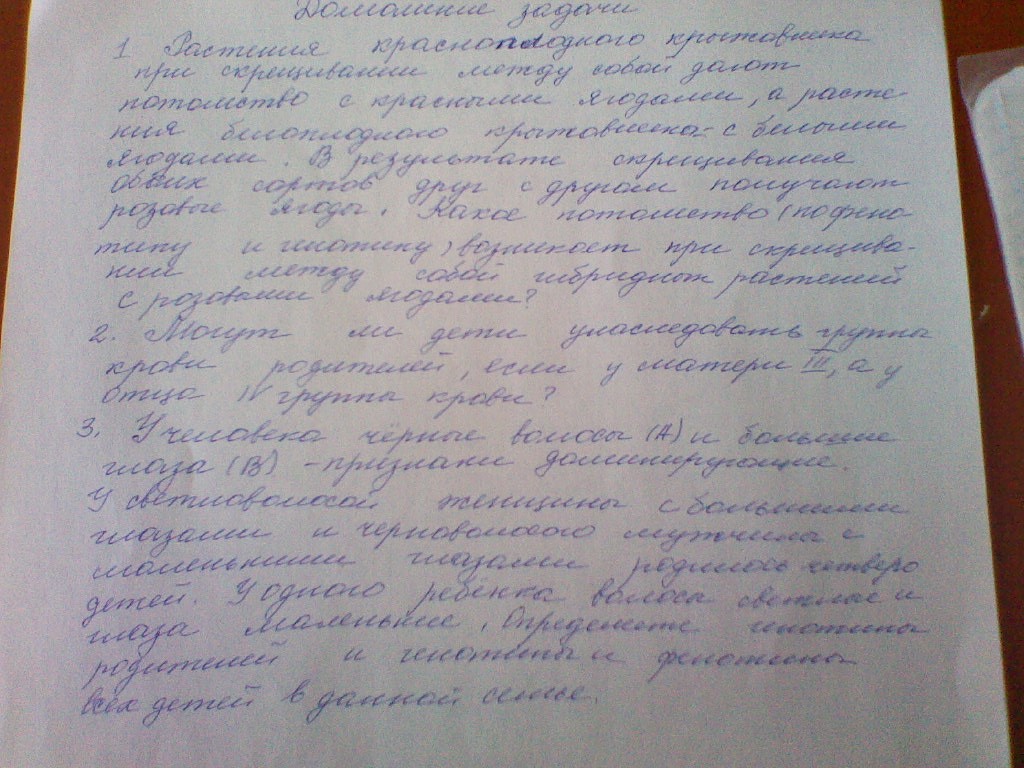 Домашние задачи
1 Растения красноплодного крыжовника
при скрещивании между собой дают
потомство с красными ягодами, а расте-
ния белоплодного крыжовника - с белыми
ягодами. В результате скрещивания
обеих сортов друг с другом получают
розовые ягоды. Какое потомство (по фено
типу и генотипу) возникает при скрещива-
нии между собой гибридных растений
с розовыми ягодами?
2. Могут ли дети унаследовать группы
крови родителей, если у матери III, а у
отца IV группы крови?
3. У человека чёрные волосы (А) и большие
глаза (В) - признаки доминирующие.
У светловолосой женщины с большими
глазами и черноволосого мужчины с
маленькими глазами родилось четверо
детей. У одного ребёнка волосы светлые и
глаза маленькие. Определите генотипы
родителей и генотипы и фенотипы
всех детей в данной семье.